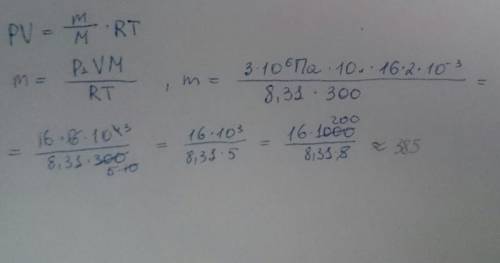 PV = m/M · RT
m = P₁VM/RT , m = 3·10⁶Па·10·16·2·10⁻³/8,31·300 =
= 16·6·10⁴³/8,31·300 5·10 = 16·10³/8,31·5 = 16·1000 200/8,31·5 ≈ 385